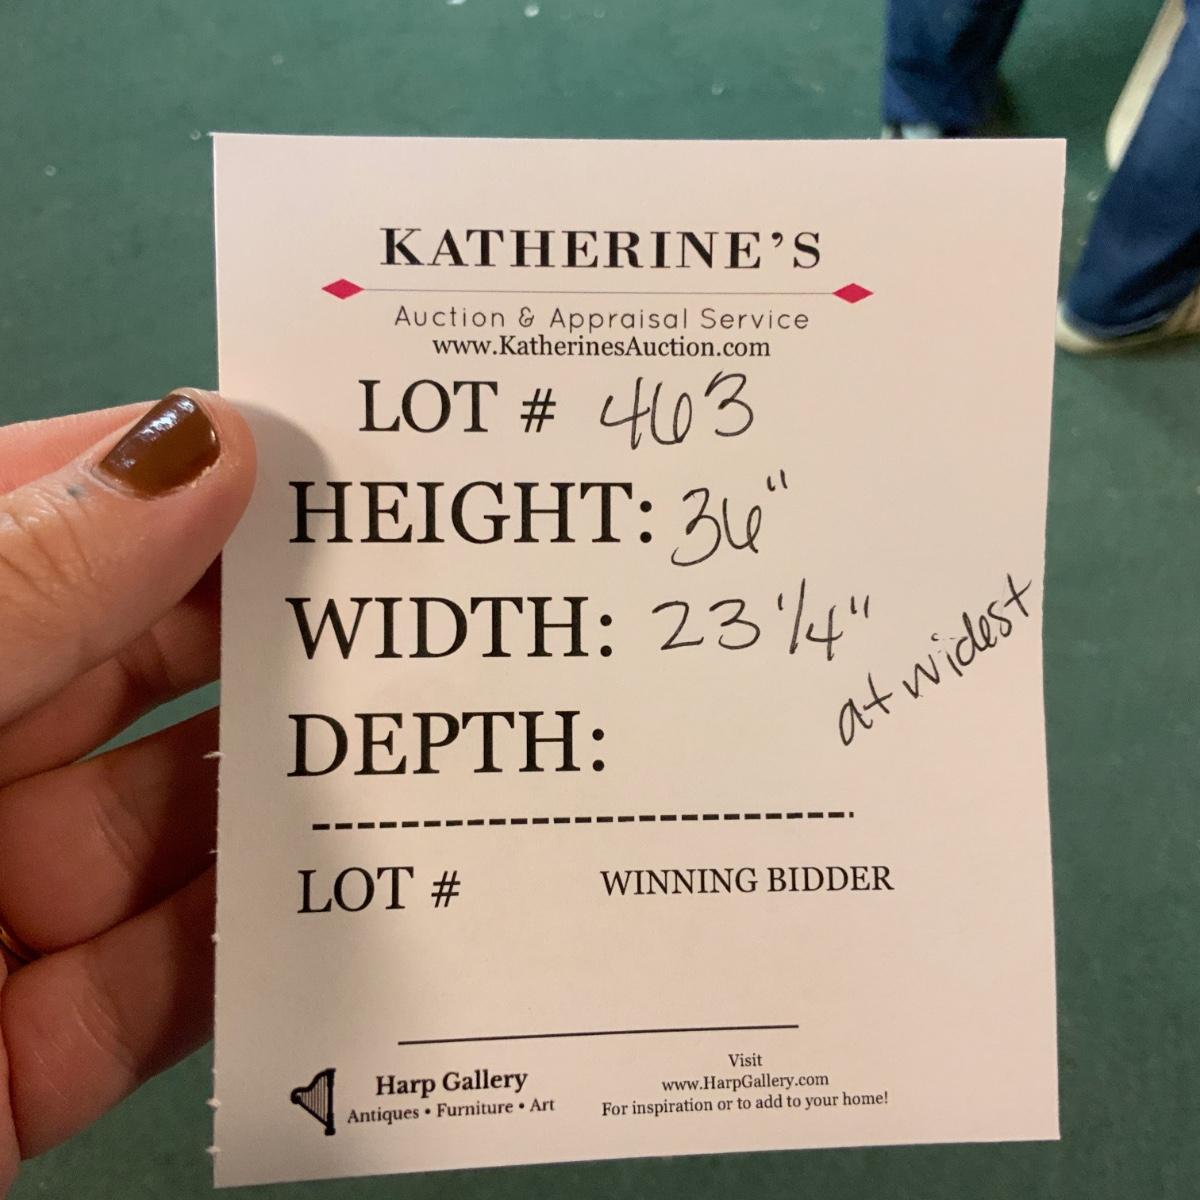 KATHERINE'S
Auction & Appraisal Service
www.KatherinesAuction.com
LOT # 463
HEIGHT: 36"
WIDTH: 23 1/4" at widest
DEPTH:
LOT # WINNING BIDDER
Harp Gallery
Antiques • Furniture • Art
Visit
www.HarpGallery.com
For inspiration or to add to your home!